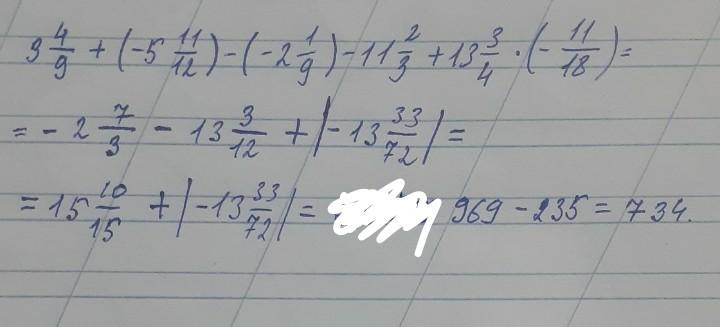 3 4/9 + (-5 11/12) - (-2 1/9) - 11 2/3 + 13 3/4 · (- 11/18) =
= - 2 7/3 - 13 3/12 + |-13 33/72| =
= 15 10/15 + |-13 33/72| = 969 - 235 = 734.